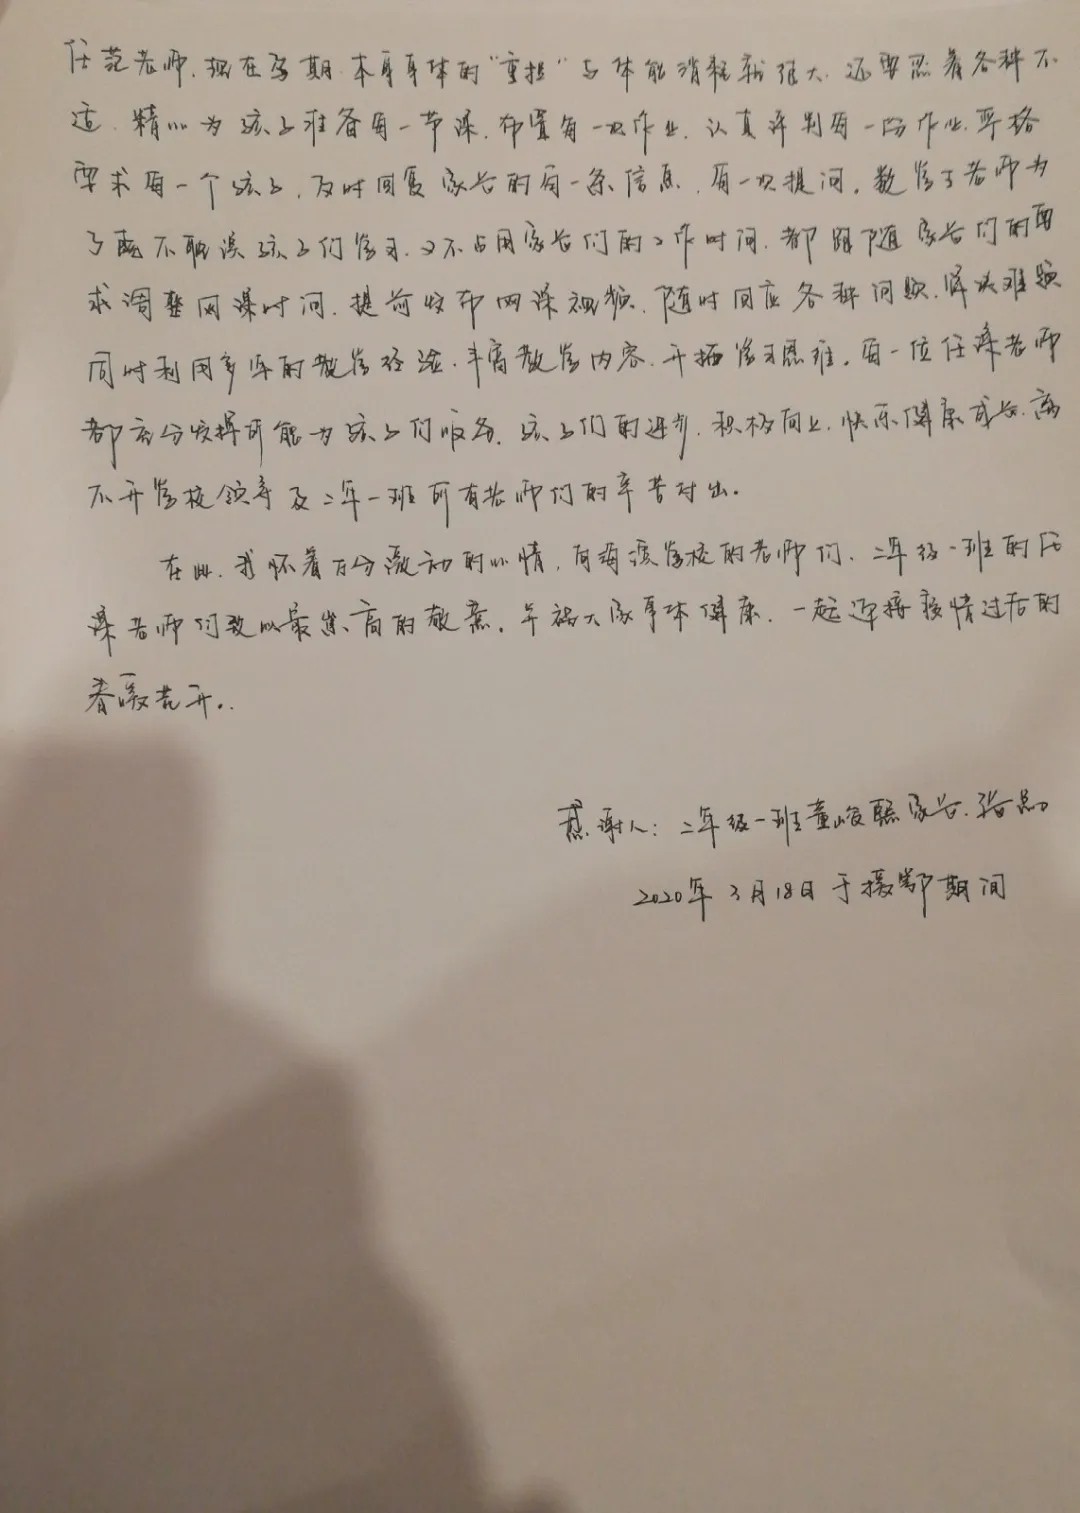 任范老师，现在孕期，本身身体的“重担”与体能消耗就很大，还要忍着各种不
适，精心为孩子准备每一节课，布置每一次作业，认真评判每一份作业，严格
要求每一个孩子，及时回复家长的每一条信息，每一次提问。数学于老师为
了既不耽误孩子们学习，又不占用家长们的工作时间，都跟随家长们的要
求调整网课时间，提前发布网课视频，随时回应各种问题，解决难题
同时利用多年的教学经验，丰富教学内容，开拓学习思维。每一位任课老师
都充分发挥可能为孩子们服务，孩子们的进步，积极向上，快乐健康成长，离
不开学校领导及二年一班所有老师们的辛苦付出。
在此，我怀着万分激动的心情，向 学校的老师们，二年级一班的任
课老师们致以最崇高的敬意。 祝大家身体健康，一起迎接疫情过后的
春暖花开。
感谢人：二年级一班董峻熙家长 张
2020年3月18日于援鄂期间